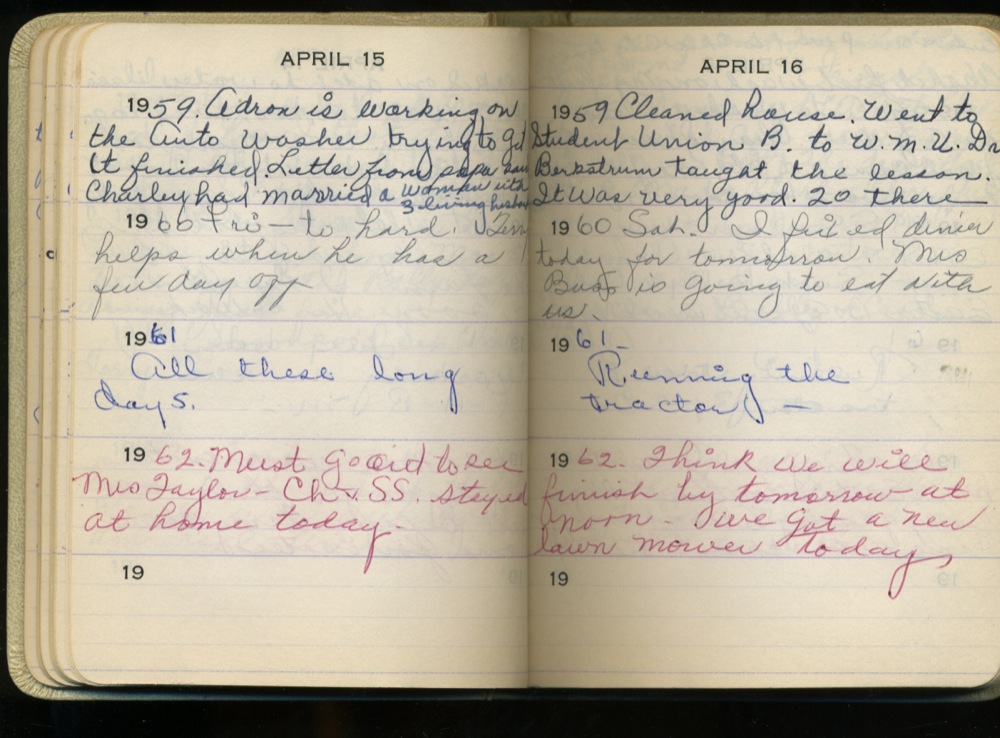 APRIL 15
1959. Adron is working on
the Auto Washer trying to get
it finished. Letter from papa saw
Charley had married a woman with
3 living husban
1960 Fri - to hard. Terr
helps when he has a
few day off
1961
All these long
days.
1962. Must go out to see
Mrs Taylor - Ch. SS. stayed
at home today.
19
APRIL 16
1959 Cleaned house. Went to
Student Union B. to W.M.U. Dr
Berkstrum taught the lesson.
It was very good. 20 there
1960 Sat. I fixed dinner
today for tomorrow. Mrs
is going to eat with
us.
1961 -
Running the
tractor -
1962. Think we will
finish by tomorrow at
noon - we got a new
lawn mower today
19